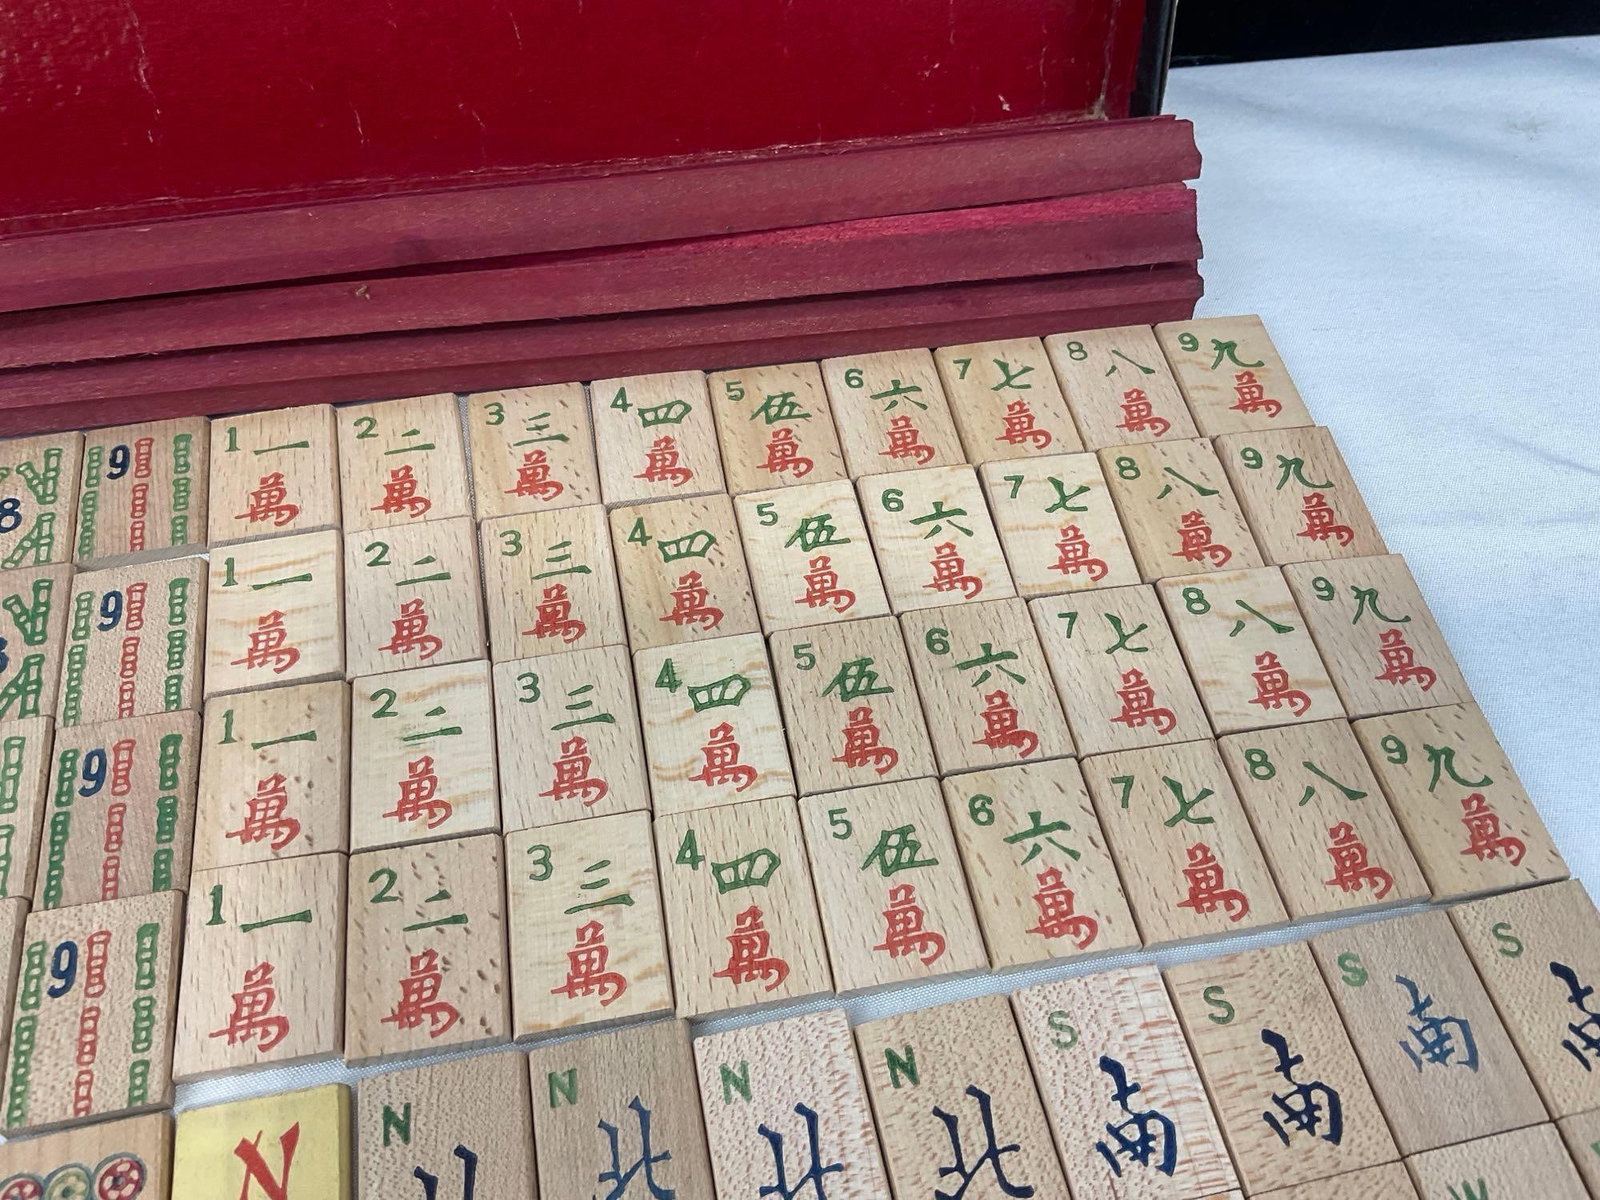 8 9 1一萬 2二萬 3三萬 4四萬 5伍萬 6六萬 7七萬 8八萬 9九萬
9 1一萬 2二萬 3三萬 4四萬 5伍萬 6六萬 7七萬 8八萬 9九萬
9 1一萬 2二萬 3三萬 4四萬 5伍萬 6六萬 7七萬 8八萬 9九萬
9 1一萬 2二萬 3三萬 4四萬 5伍萬 6六萬 7七萬 8八萬 9九萬
N N N北 N北 N北 S南 S南 S南 S南
W